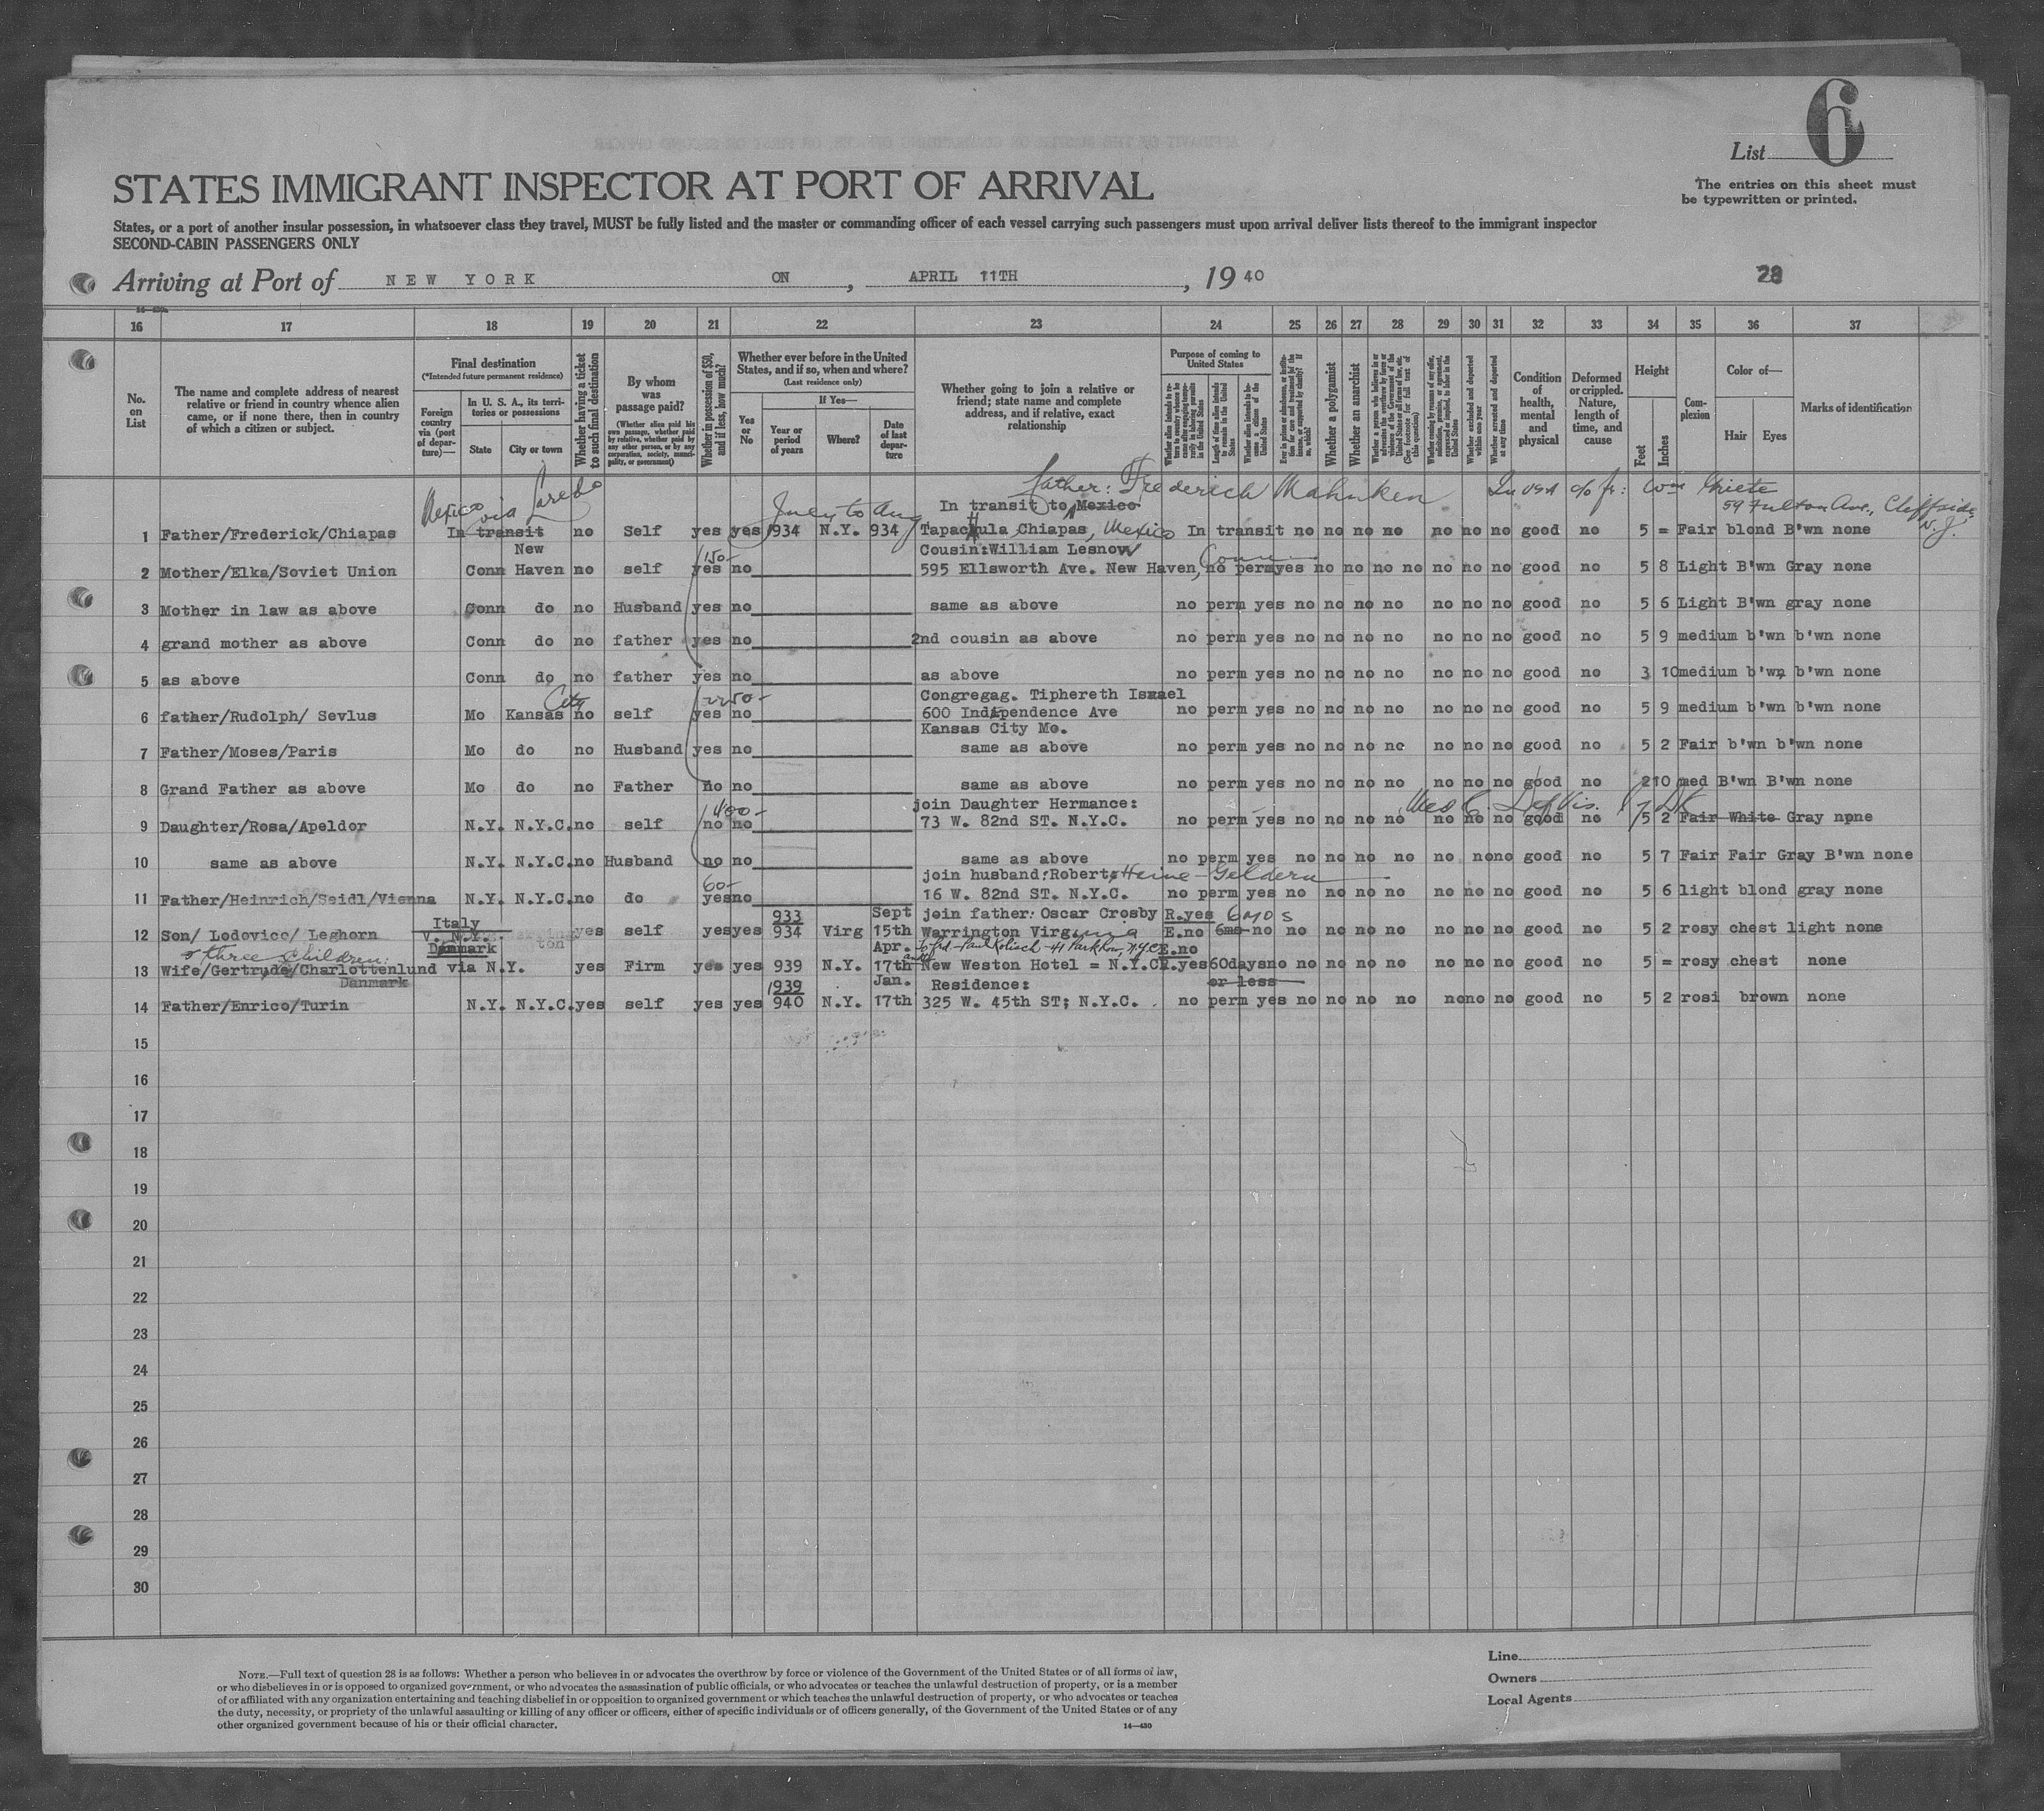 6
List
The entries on this sheet must
be typewritten or printed.
STATES IMMIGRANT INSPECTOR AT PORT OF ARRIVAL
States, or a port of another insular possession, in whatsoever class they travel, MUST be fully listed and the master or commanding officer of each vessel carrying such passengers must upon arrival deliver lists thereof to the immigrant inspector
SECOND-CABIN PASSENGERS ONLY
Arriving at Port of NEW YORK ON, APRIL 11TH, 1940
28
16 17 18 19 20 21 22 23 24 25 26 27 28 29 30 31 32 33 34 35 36 37
No. on List
The name and complete address of nearest relative or friend in country whence alien came, or if none there, then in country of which a citizen or subject.
Final destination
(*Intended future permanent residence)
Foreign country via (port of departure)—
In U. S. A., its territories or possessions
State
City or town
Whether having a ticket to such final destination
By whom was passage paid?
(Whether alien paid his own passage, whether paid by relative, whether paid by any other person, or by any corporation, society, municipality, or government)
Whether in possession of $50, and if less, how much?
Whether ever before in the United States, and if so, when and where?
(Last residence only)
Yes or No
If Yes—
Year or period of years
Where?
Date of last departure
Whether going to join a relative or friend; state name and complete address, and if relative, exact relationship
Purpose of coming to United States
Length of time alien intends to remain in the United States
Whether alien intends to become a citizen of the United States
Whether a polygamist
Whether an anarchist
Whether excluded and deported within one year
Whether arrested and deported at any time
Condition of health, mental and physical
Deformed or crippled. Nature, length of time, and cause
Height
Feet
Inches
Complexion
Color of—
Hair
Eyes
Marks of identification
Mexico via Laredo
June to Aug
father: Frederich Mahnken In USA c/o fr: Wm
59 Fulton Ave., Cliffside, N.J.
In transit to Mexico
1 Father/Frederick/Chiapas In transit no Self yes yes 1934 N.Y. 934 Tapachula Chiapas, Mexico In transit no no no no no no no good no 5 = Fair blond B'wn none
New 150- Cousin:William Lesnow Conn
2 Mother/Elka/Soviet Union Conn Haven no self yes no 595 Ellsworth Ave. New Haven, no perm yes no no no no no no no good no 5 8 Light B'wn Gray none
3 Mother in law as above Conn do no Husband yes no same as above no perm yes no no no no no no no good no 5 6 Light B'wn gray none
4 grand mother as above Conn do no father yes no 2nd cousin as above no perm yes no no no no no no no good no 5 9 medium b'wn b'wn none
5 as above Conn do no father yes no as above no perm yes no no no no no no no good no 3 10 medium b'wn b'wn none
City 2250- Congregag. Tiphereth Israel
6 father/Rudolph/ Sevlus Mo Kansas no self yes no 600 Independence Ave no perm yes no no no no no no no good no 5 9 medium b'wn b'wn none
Kansas City Mo.
7 Father/Moses/Paris Mo do no Husband yes no same as above no perm yes no no no no no no no good no 5 2 Fair b'wn b'wn none
8 Grand Father as above Mo do no Father no no same as above no perm yes no no no no no no no good no 2 10 med B'wn B'wn none
400- join Daughter Hermance: Med C. Def Vis.
9 Daughter/Rosa/Apeldor N.Y. N.Y.C. no self no no 73 W. 82nd ST. N.Y.C. no perm yes no no no no no no no good no 5 2 Fair White Gray none
10 same as above N.Y. N.Y.C. no Husband no no same as above no perm yes no no no no no no no good no 5 7 Fair Fair Gray B'wn none
60- join husband:Robert: Heine-Geldern
11 Father/Heinrich/Seidl/Vienna N.Y. N.Y.C. no do yes no 16 W. 82nd ST. N.Y.C. no perm yes no no no no no no no good no 5 6 light blond gray none
Italy 933 Sept join father: Oscar Crosby R.yes 6mos
12 Son/ Lodovico/ Leghorn V. N.Y. yes self yes yes 934 Virg 15th Warrington Virginia E.no 6ms no no no no no no no no good no 5 2 rosy chest light none
& three children: Danmark Apr. To frd-Paul Kolisch-41 Park Row, N.Y.C. E.no
13 Wife/Gertrude/Charlottenlund via N.Y. yes Firm yes yes 939 N.Y. 17th New Weston Hotel = N.Y.C. R.yes 60days no no no no no no no no good no 5 = rosy chest none
Danmark 1939 Jan. Residence: or less
14 Father/Enrico/Turin N.Y. N.Y.C. yes self yes yes 940 N.Y. 17th 325 W. 45th ST; N.Y.C. no perm yes no no no no no no no good no 5 2 rosi brown none
15
16
17
18
19
20
21
22
23
24
25
26
27
28
29
30
NOTE.—Full text of question 28 is as follows: Whether a person who believes in or advocates the overthrow by force or violence of the Government of the United States or of all forms of law,
or who disbelieves in or is opposed to organized government, or who advocates the assassination of public officials, or who advocates or teaches the unlawful destruction of property, or is a member
of or affiliated with any organization entertaining and teaching disbelief in or opposition to organized government or which teaches the unlawful destruction of property, or who advocates or teaches
the duty, necessity, or propriety of the unlawful assaulting or killing of any officer or officers, either of specific individuals or of officers generally, of the Government of the United States or of any
other organized government because of his or their official character.
14—430
Line
Owners
Local Agents